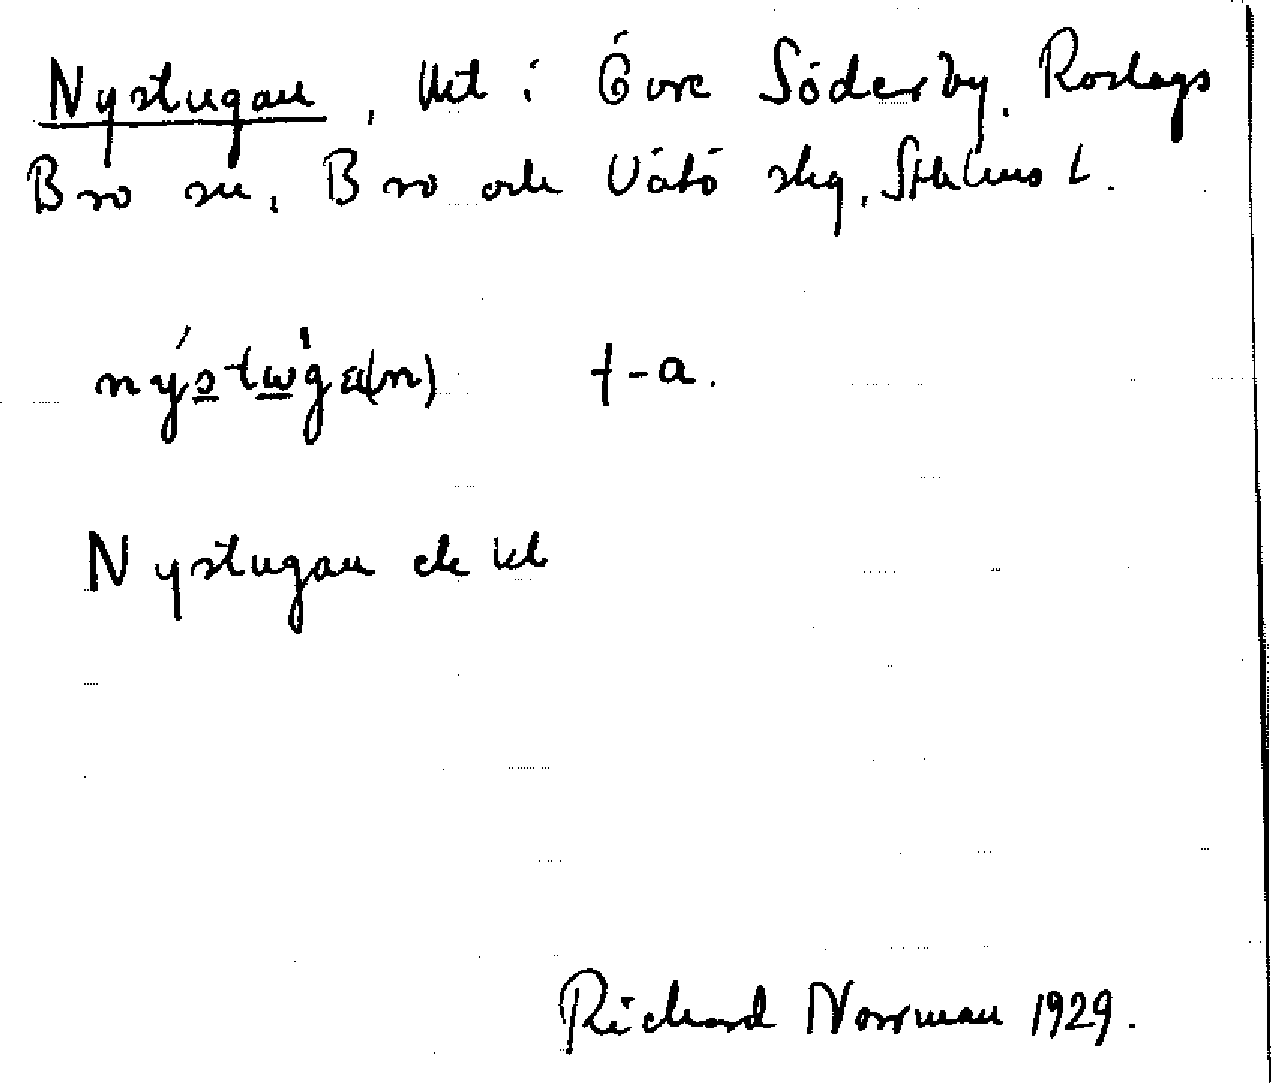 Nystugan, lht i Övre Söderby, Roslags
Bro sn, Bro och Vätö skg, Sthlms l.
nýstẁga(n) f-a.
Nystugan ek
Richard Norrman 1929.